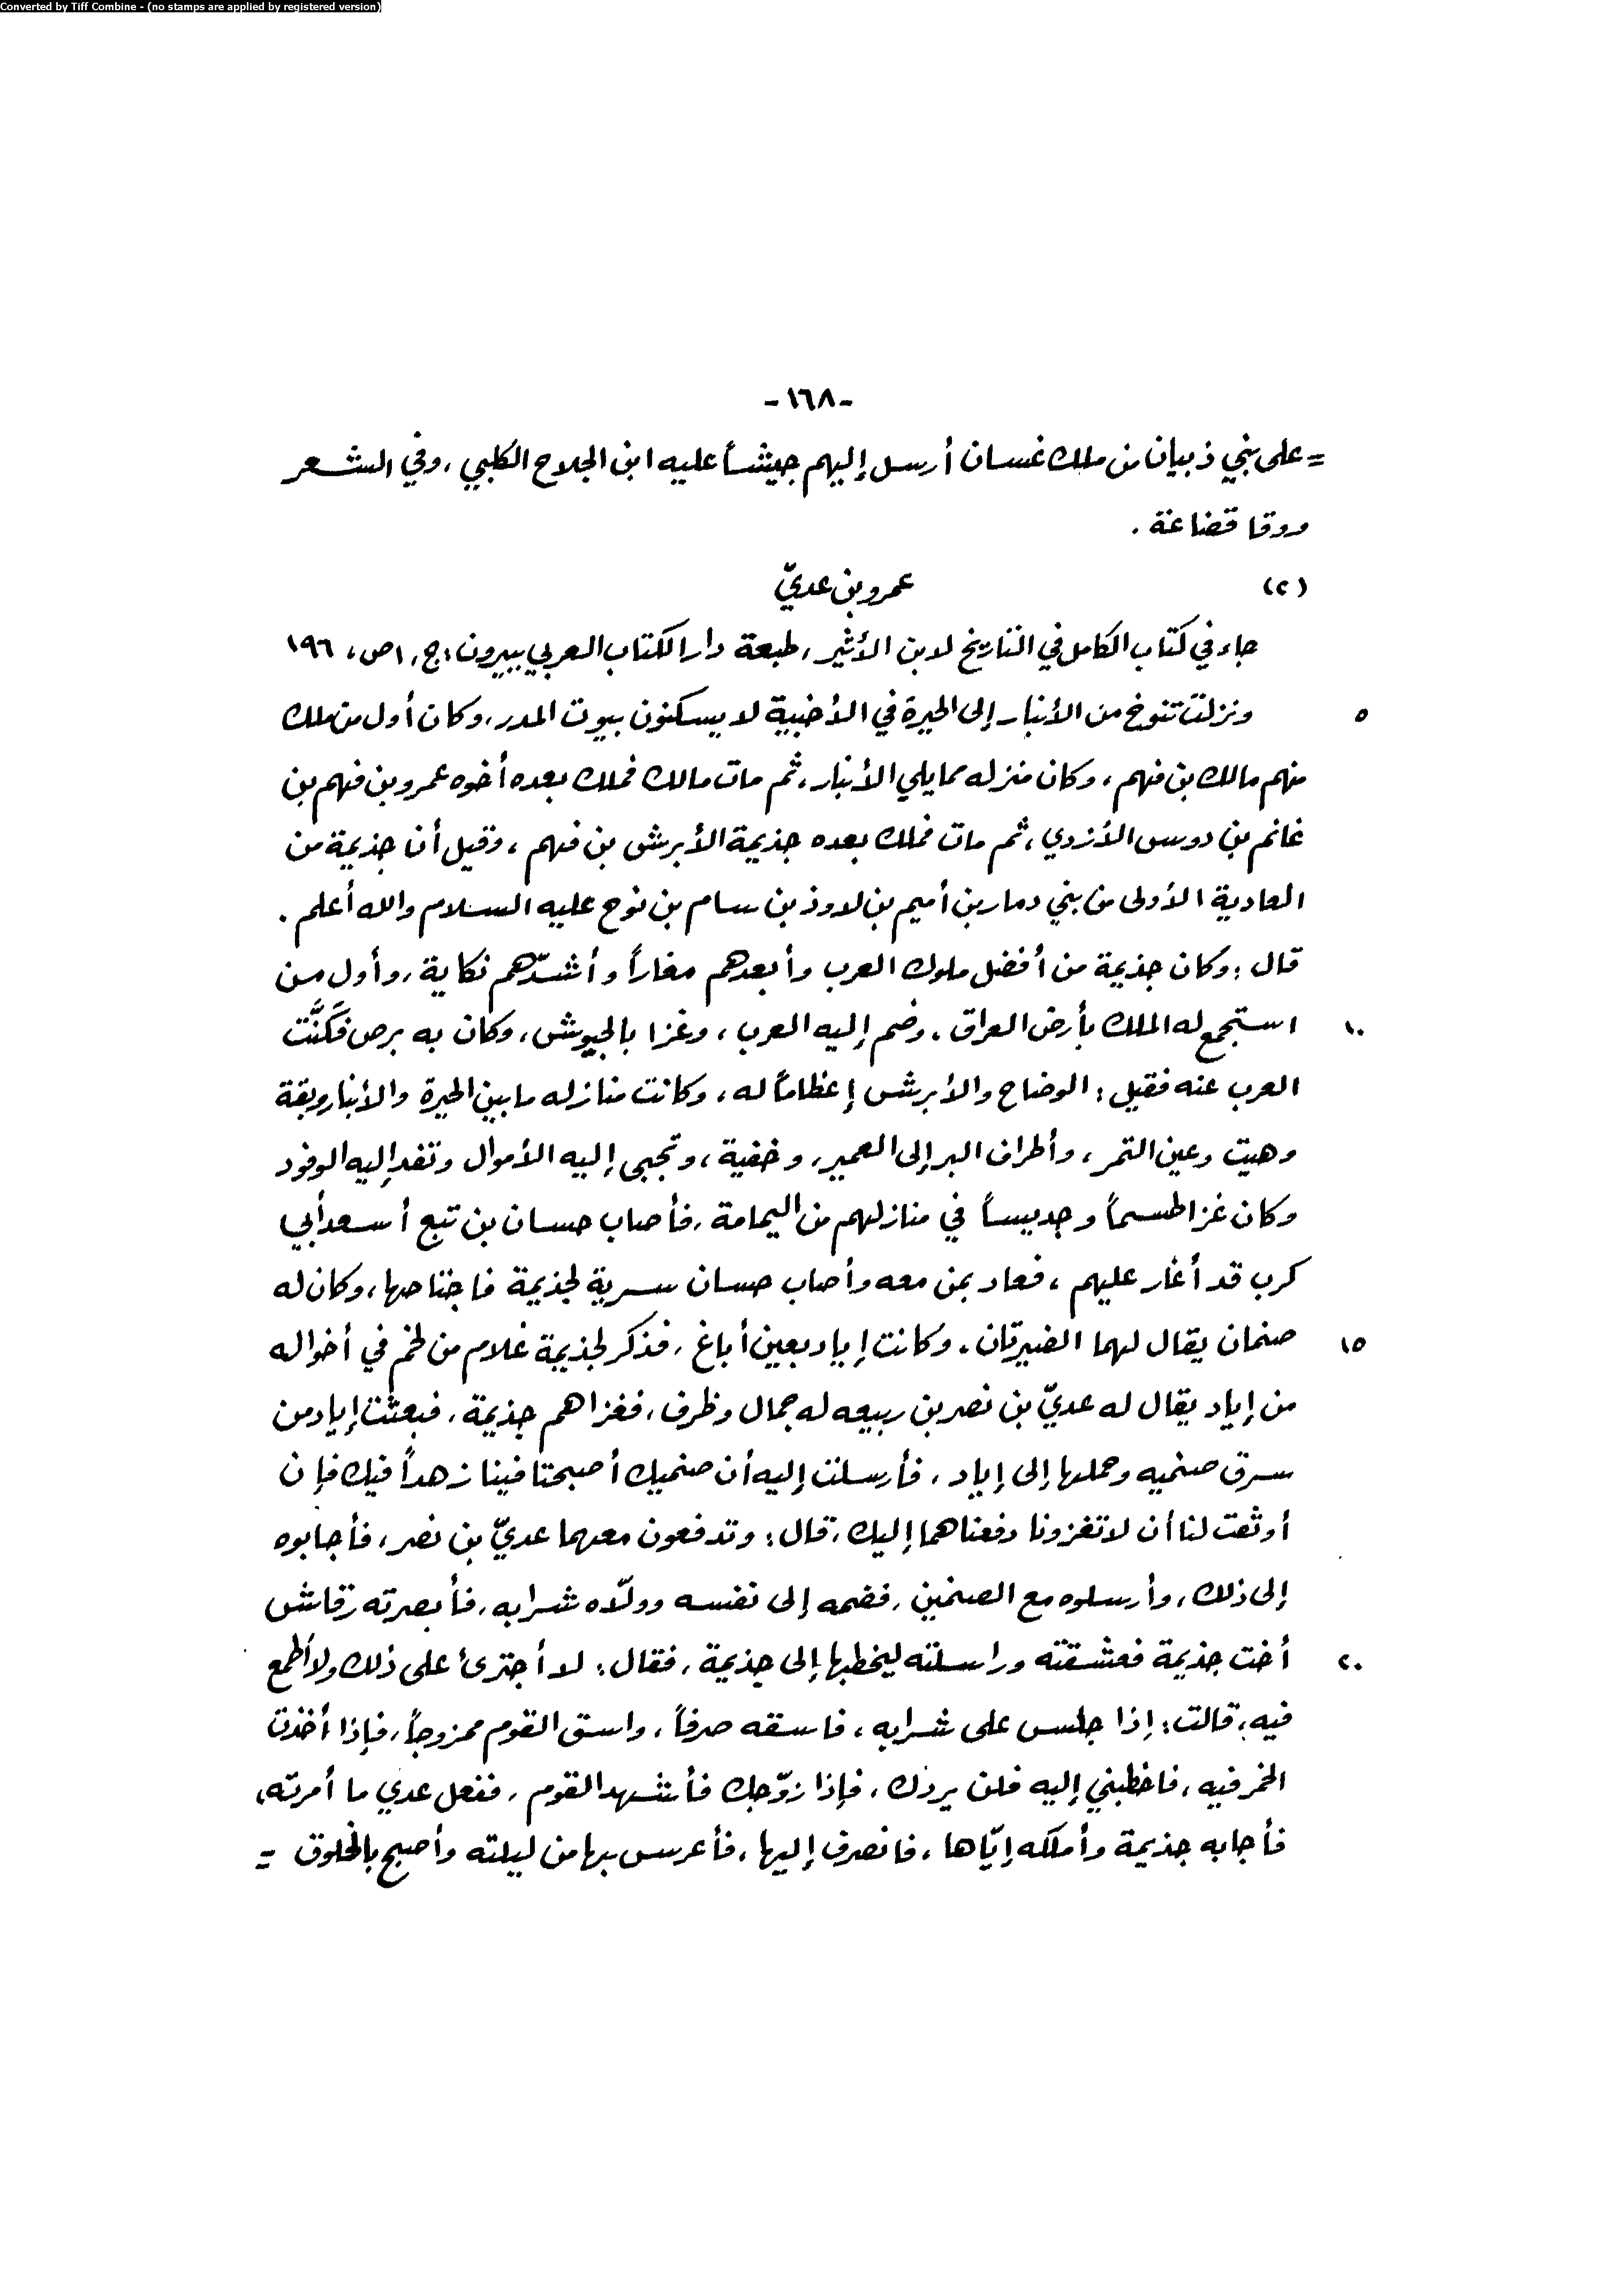 Converted by Tiff Combine - (no stamps are applied by registered version)
-١٦٨-
= على بني ذبيان من ملك غسان أرسل إليهم جيشاً عليه ابن الجلاح الكلبي، وفي الشعر
ووقا قضاعة .
(٢) عمرو بن عديّ
جاء في كتاب الكامل في التاريخ لابن الأثير، طبعة دار الكتاب العربي ببيروت: ج، ١ ص، ١٩٦
٥ ونزلت تنوخ من الأنبار إلى الحيرة في الأخبية لا يسكنون بيوت المدر، وكان أول من ملك
منهم مالك بن فهم، وكان منزله مما يلي الأنبار، ثم مات مالك فملك بعده أخوه عمرو بن فهم بن
غانم بن دوس الأزدي، ثم مات فملك بعده جذيمة الأبرش بن فهم، وقيل أن جذيمة من
العادية الأولى من بني دمار بن أميم بن لاوذ بن سام بن نوح عليه السلام والله أعلم .
قال : وكان جذيمة من أفضل ملوك العرب وأبعدهم مغاراً وأشدّهم نكاية، وأول من
١٠ استجمع له الملك بأرض العراق، وضم إليه العرب، وغزا بالجيوش، وكان به برص فكَنَّت
العرب عنه فقيل : الوضاح والأبرش إعظاماً له، وكانت منازله ما بين الحيرة والأنبار وبقة
وهيت وعين التمر، وأطراف البر إلى العمير، وخفية، وتجبى إليه الأموال وتفد إليه الوفود
وكان غزا طسماً وجديساً في منازلهم من اليمامة، فأصاب حسان بن تبع أسعد أبي
كرب قد أغار عليهم، فعاد بمن معه وأصاب حسان سرية لجذيمة فاجتاحها، وكان له
١٥ صنمان يقال لهما الضيرتان، وكانت إياد بعين أباغ، فذكر لجذيمة غلام من لخم في أخواله
من إياد يقال له عديّ بن نصر بن ربيعه له جمال وظرف، فغزاهم جذيمة، فبعثت إياد من
سرق صنميه وحملها إلى إياد، فأرسلت إليه أن صنميك أصبحتا فينا زهداً فيك فإن
أوثقت لنا أن لا تغزونا دفعناهما إليك، قال : وتدفعون معهما عديّ بن نصر، فأجابوه
إلى ذلك، وأرسلوه مع الصنمين، فضمه إلى نفسه وولّاه شرابه، فأبصرته رقاش
٢٠ أخت جذيمة فعشقته وراسلته ليخطبها إلى جذيمة، فقال : لا أجترئ على ذلك ولا أطمع
فيه، قالت : إذا جلس على شرابه، فاسقه صرفاً، واسق القوم ممزوجاً، فإذا أخذت
الخمر فيه، فاخطبني إليه فلن يردك، فإذا زوّجك فأشهد القوم، ففعل عدي ما أمرته،
فأجابه جذيمة وأملكه إيّاها، فانصرف إليها، فأعرس بها من ليلته وأصبح بالخلوق =